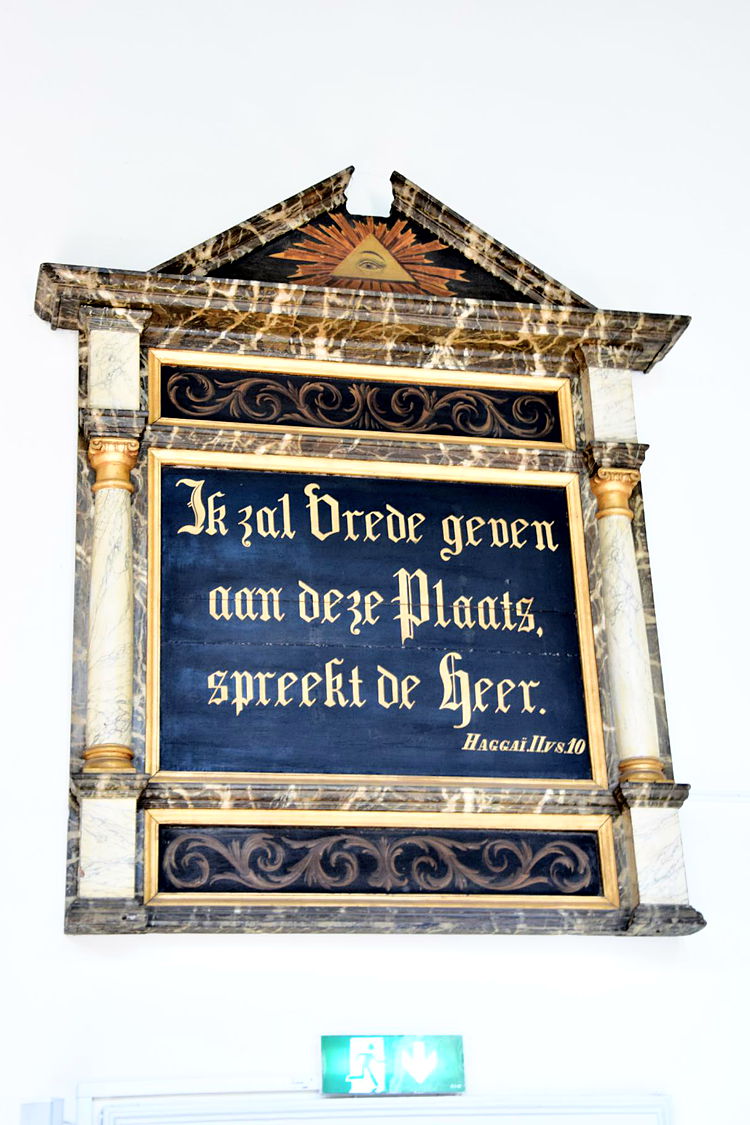 Ik zal Vrede geven
aan deze Plaats,
spreekt de Heer.
Haggaï. II vs. 10